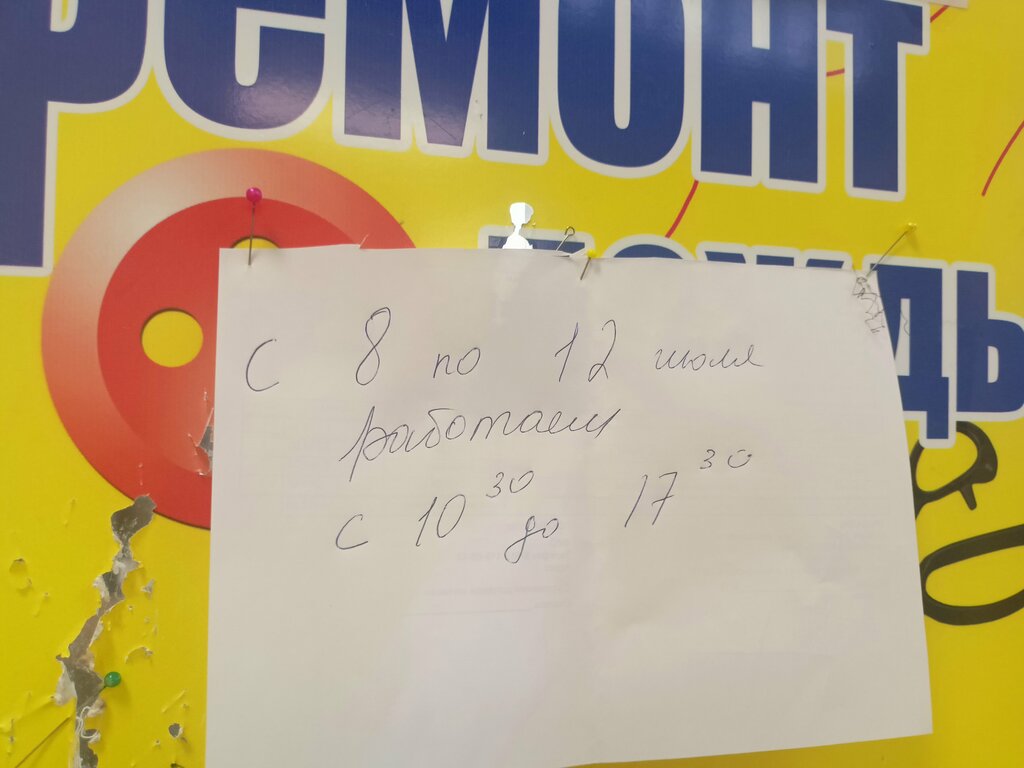 ремонт
С 8 по 12 июля
работаем
с 10 30 до 17 30